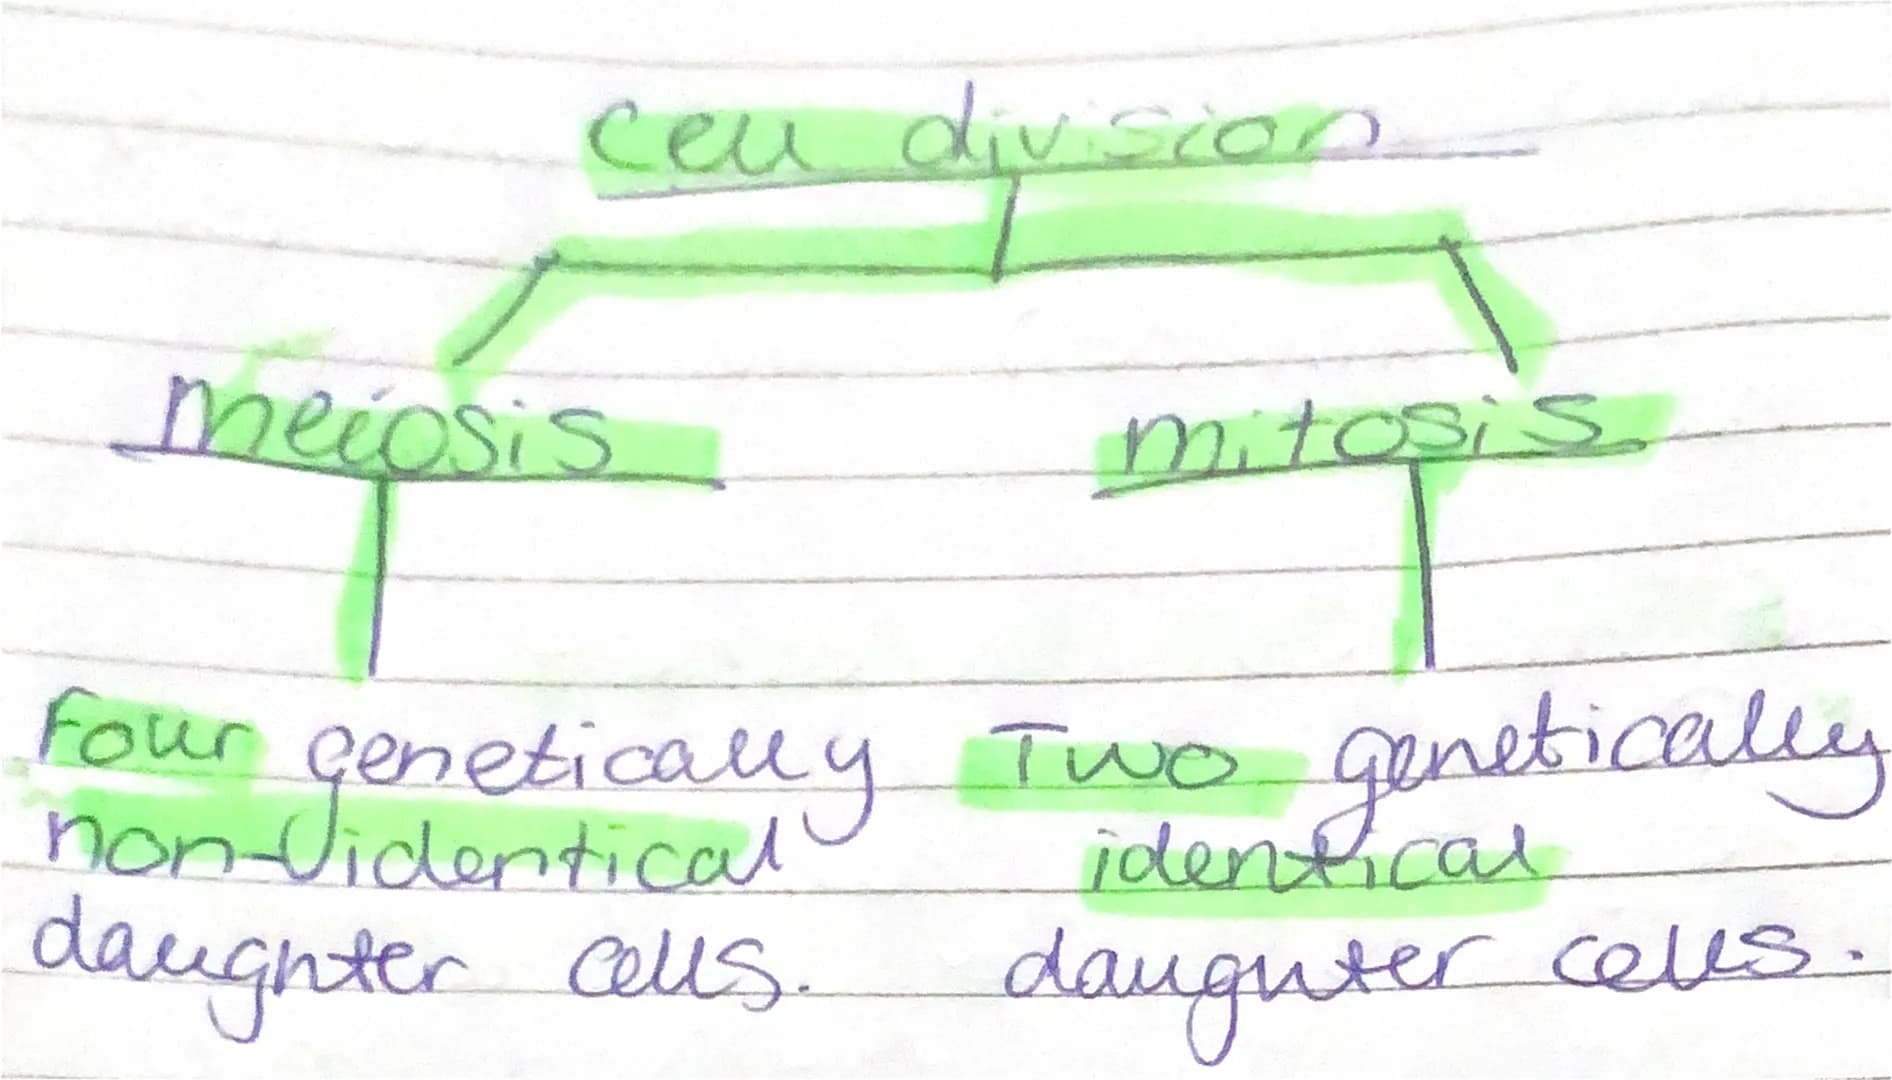 cell division
meiosis
mitosis
Four genetically
non-identical
daughter cells.
Two genetically
identical
daughter cells.